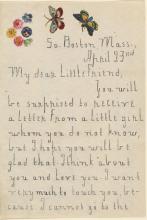 So. Boston Mass.,
April 23nd
My dear Little friend,
You will
be surprised to receive
a letter from a little girl
whom you do not know,
but I hope you will be
glad that I think about
you and love you. I want
very much to touch you, be-
cause I cannot go to the